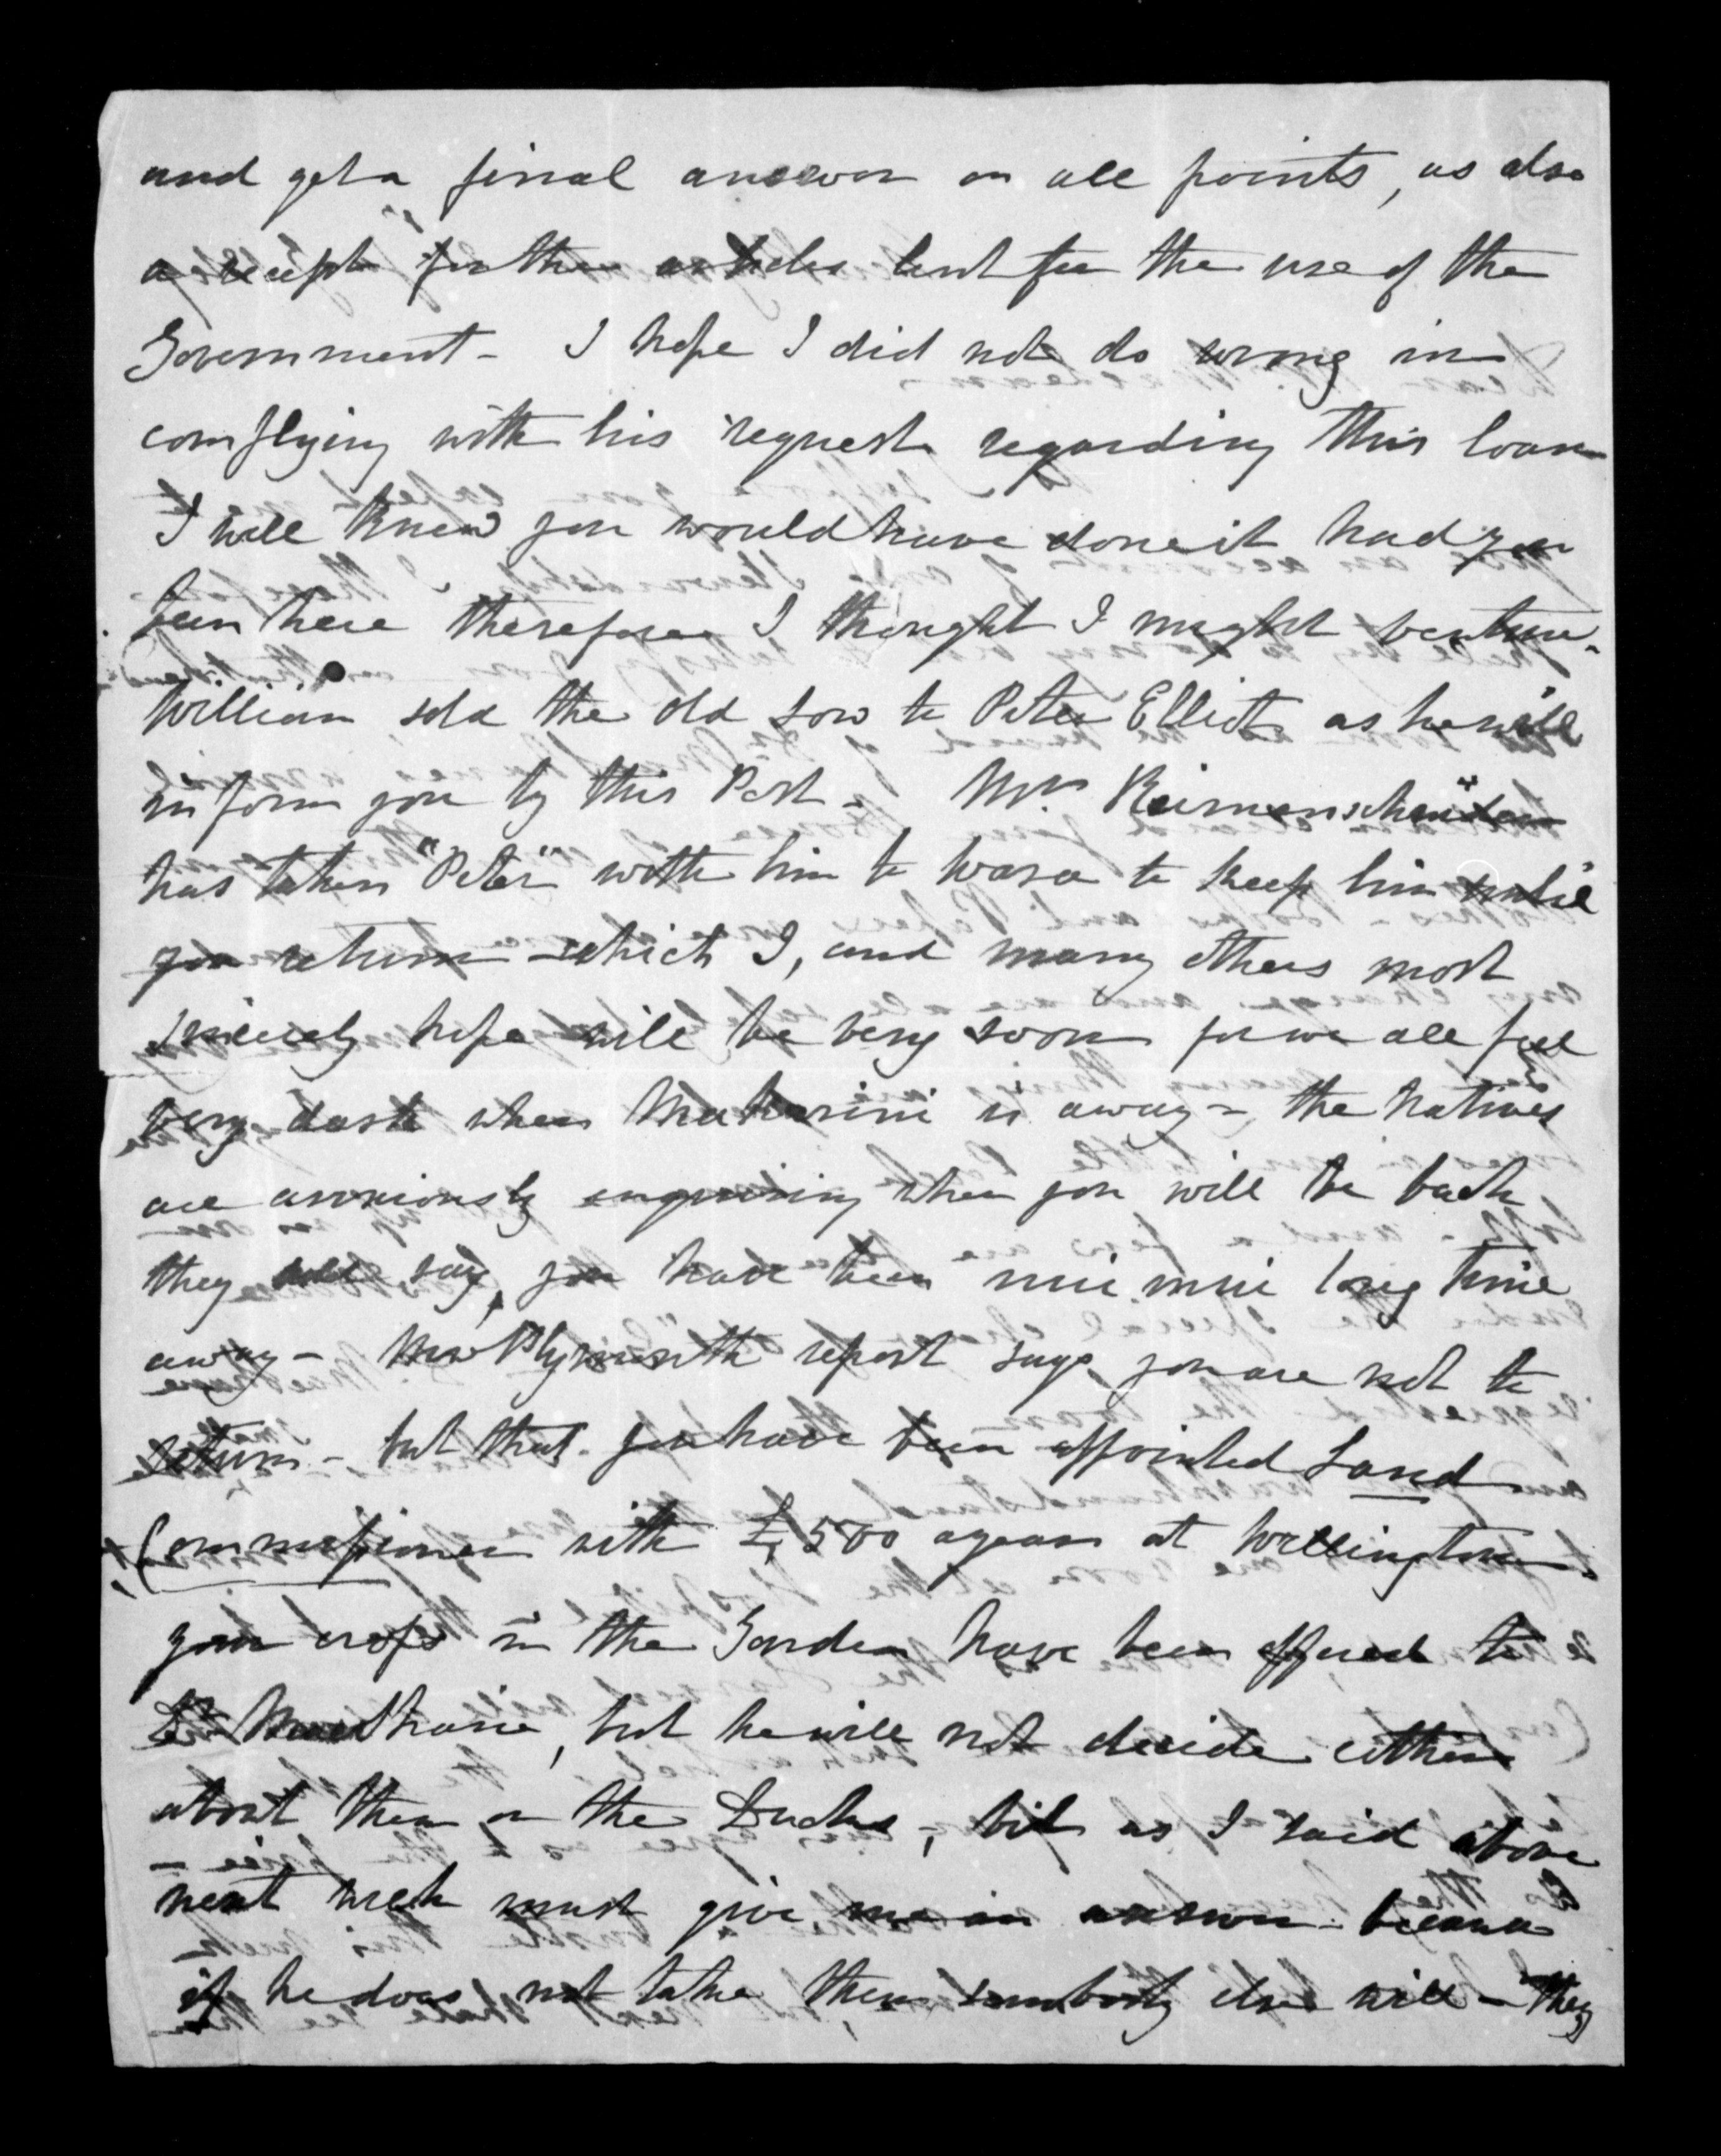 and get a final answer on all points, as also
a receipt for the articles lent for the use of the
Government - I hope I did not do wrong in
complying with his request regarding this loan
I well knew you would have done it had you
been here therefore I thought I might venture.
William sold the old sow to Peter Elliot as he will
inform you by this Post - Mr. Reimenschneider
has taken "Peter" with him to Warea to keep him until
you return - which I, and many others most
sincerely hope will be very soon for we all feel
very dark when Makarini is away - the Natives
are anxiously enquiring when you will be back
they say, you have been nui nui long time
away - New Plymouth report says you are not to
return - but that you have been appointed Land
Commissioner with £500 a year at Wellington.
your crops in the Garden have been offered to
Dr. , but he will not decide either
about them or the Ducks -, but as I said above
next week must give me an answer because
if he does not take them somebody else will - They